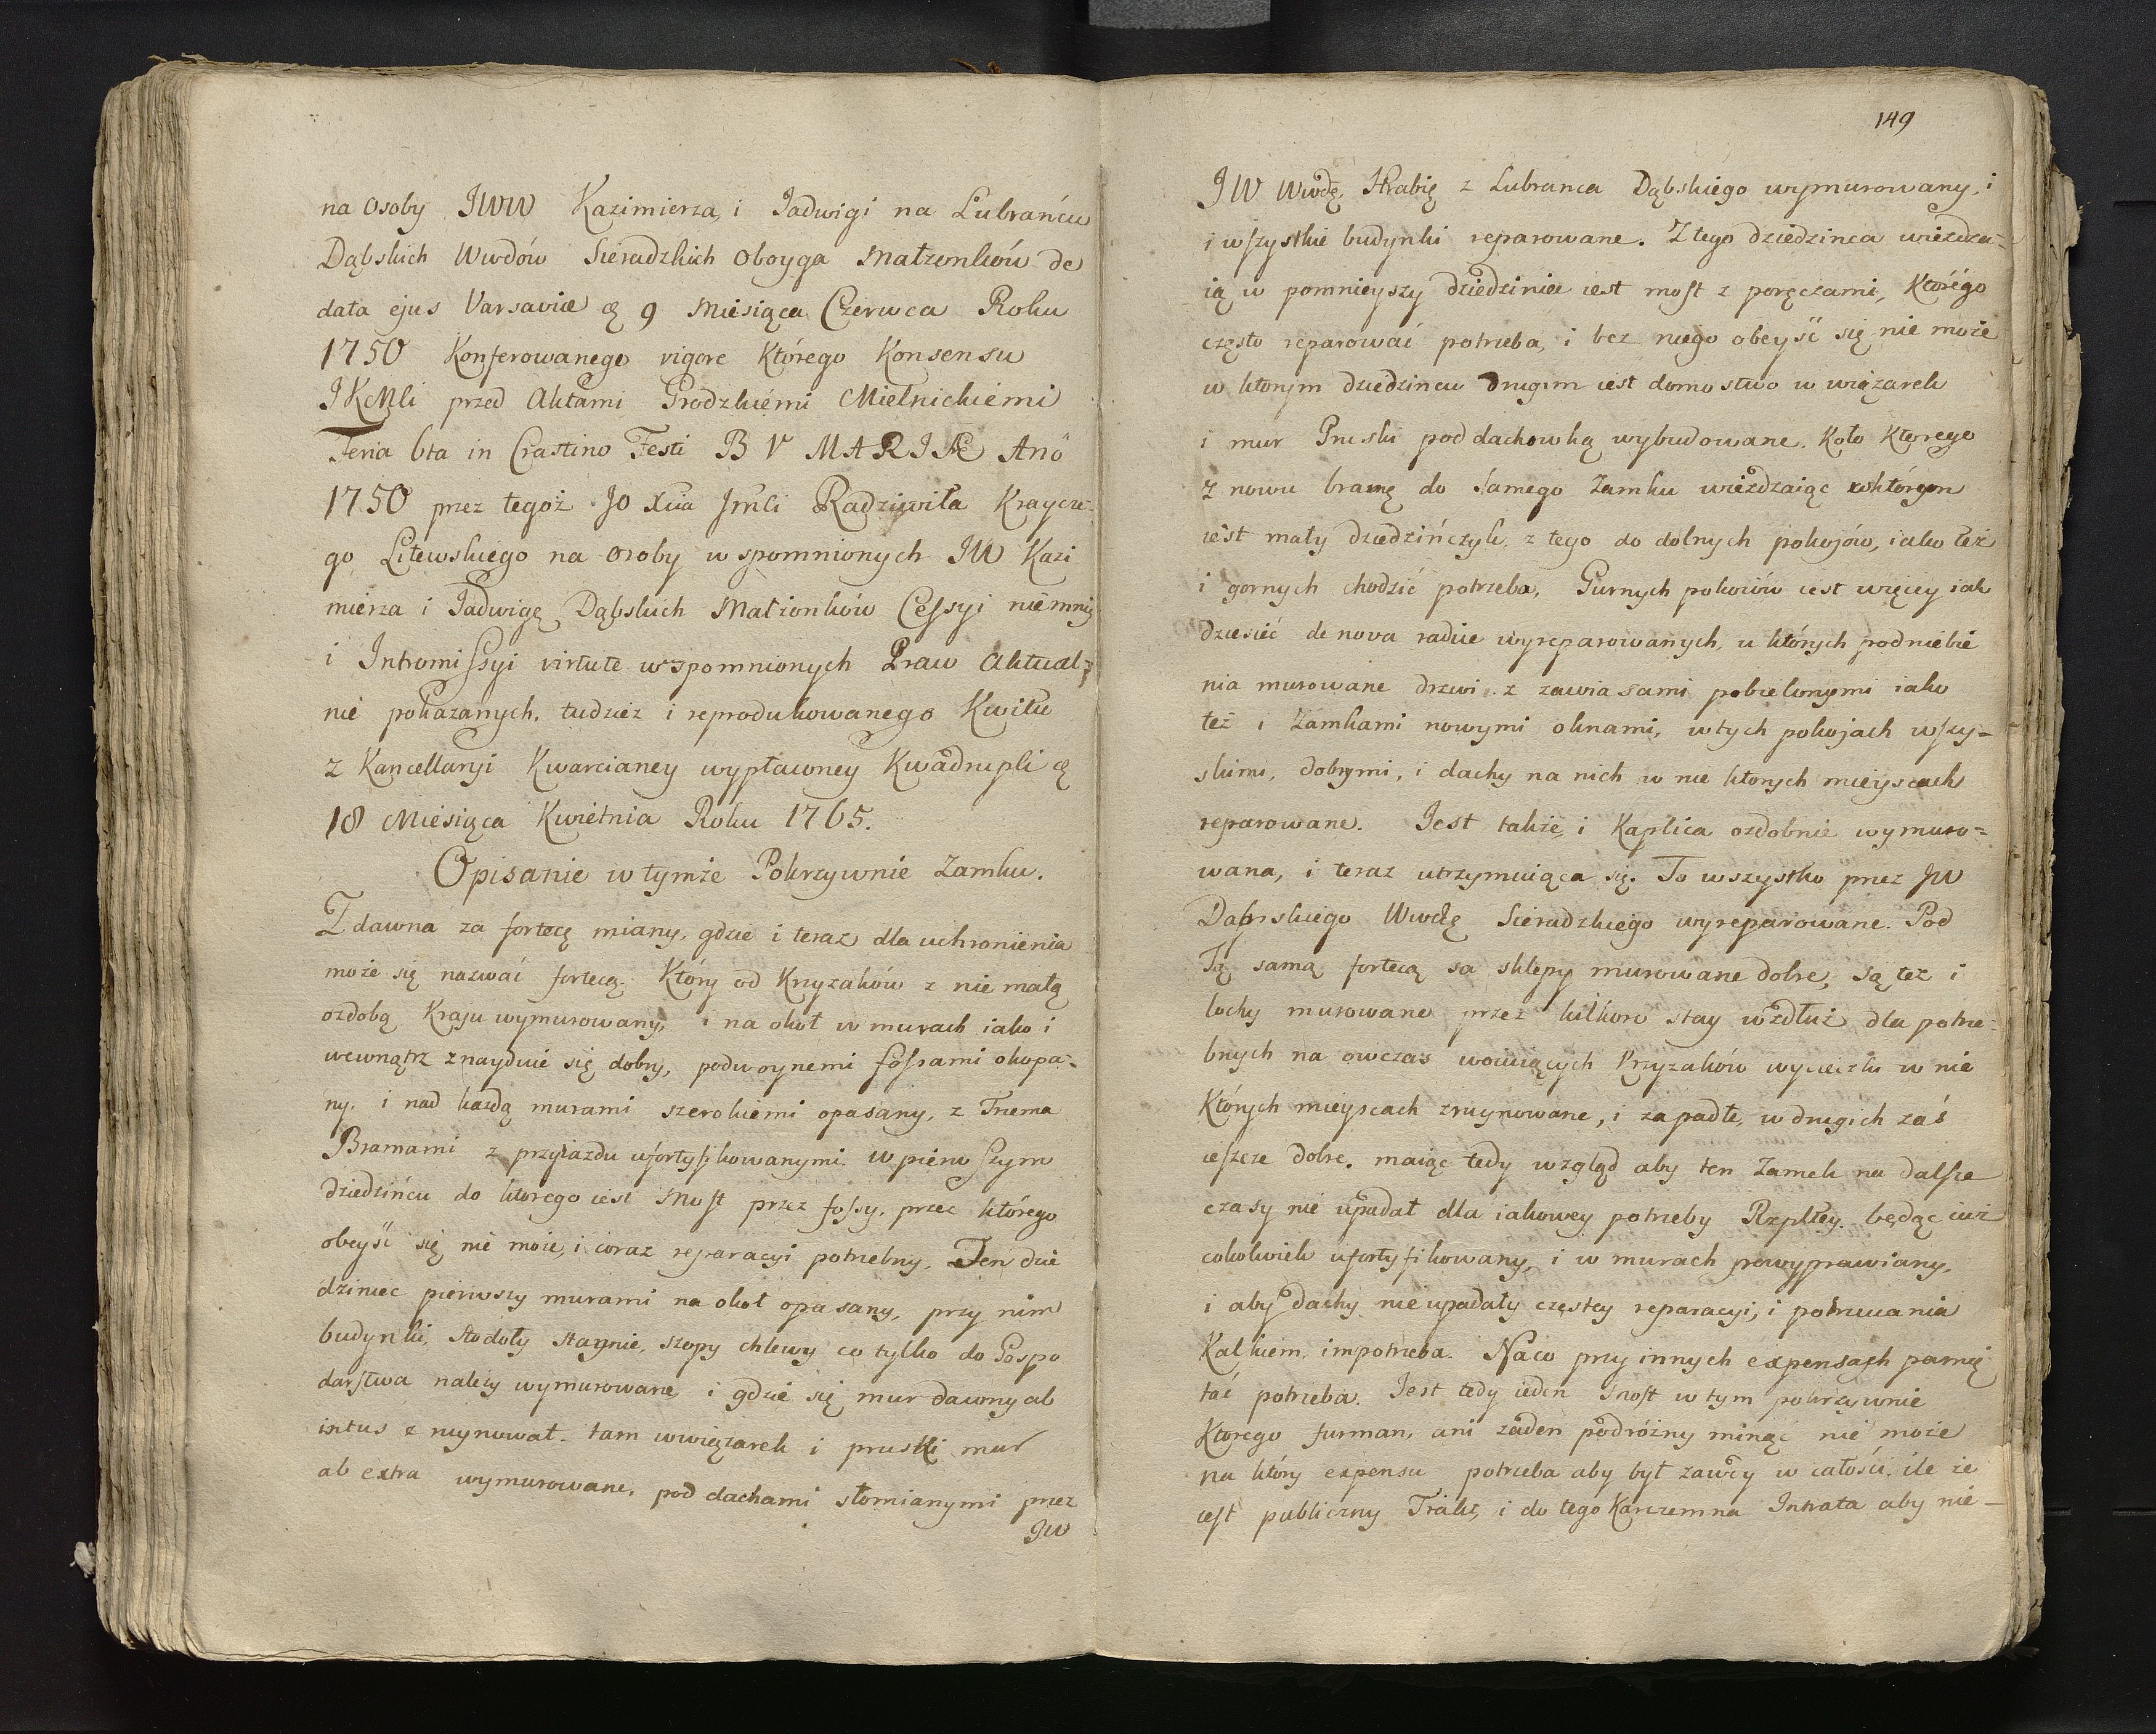 na Osoby JWW Kazimierza, i Jadwigi na Lubrańcu
Dąbskich Wwdów Sieradzkich Oboyga Małzonków de
data ejus Varsaviæ 9 Miesiąca Czerwca Roku
1750 Konferowanego vigore Którego Konsensu
JKMCi przed Aktami Grodzkiémi Mielnickiémi
Feria 6ta in Crastino Festi B V MARIÆ Anõ
1750 przez tegoż JO Xcia JmCi Radziwiła Kraycze-
go Litewskiego na osoby wspomnionych JW Kazi
mierza i Jadwigę Dąbskich Małżonków Cessyi niémniy
i Intromissyi virtute wspomnionych Praw Aktual-
nie pokazanych, tudzież i reprodukowanego Kwitu
z Kancellaryi Kwarcianey wypłaconey Kwadrupli
18 Miésiąca Kwiétnia Roku 1765.
Opisanie w tymże Pokrzywnie Zamku.
Z dawna za fortecę miany, gdzie i teraz dla uchronienia
może się nazwać fortecą. Który od Krzyzaków z nie małą
ozdobą Kraju wymurowany, i na okoł w murach iako i
wewnątrz znayduie się dobry, podwoynemi fossami okopa-
ny, i nad każdą murami szerokiemi opasany, z Trzema
Bramami z przyiazdu ufortyfikowanymi. w pierwszym
dziedzińcu do ktorego iest Most przez fossy, przez którego
obeyść się nie może, i coraz reparacyi potrzebny, Ten dzie
dziniec pierwszy murami na okoł opasany, przy nim
budynki, stodoły staynie, szopy chlewy co tylko do Gospo
darstwa należy wymurowane i gdzie się mur dawny ab
intus zruynował. tam w wiązarek i pruski mur
ab extra wymurowane, pod dachami słomianymi przez
JW
149
JW Wwdę, Hrabię z Lubranca Dąbskiego wymurowany, i
i wszystkie budynki reparowane. Z tego dziedzinca wiezdza-
ią w pomnieyszy dziedziniec iest most z poręczami, Którego
często reparować potrzeba, i bez niego obeyść się nie może
w ktorym dziedzincu drugim iest domostwo w wiązarek
i mur Pruski pod dachowką wybudowane. Koło Ktorego
z nowu bramę do samego Zamku wieżdzaiąc w którym
iest mały dziedzińczyk. z tego do dolnych pokojów, iako też
i gornych chodzić potrzeba, Gurnych pokoiów iest więcey iak
dziesięć de nova radice wyreparowanych, u których podniebie
nia murowane drzwi z zawiasami pobielonymi iako
też i Zamkami nowymi oknami, w tych pokojach wszy-
skimi, dobrymi, i dachy na nich w nie ktorych mieyscach
reparowane. Jest także i Kaplica ozdobnie wymuro-
wana, i teraz utrzymuiąca się. To wszystko przez JW
Dąbskiego Wwdę Sieradzkiego wyreparowane. Pod
Tą samą fortecą sa sklepy murowane dobre, są też i
lochy murowane przez kilkoro stay wzdłuż dla potrze-
bnych na owczas woiuiących Krzyzaków wycieczki w nie
Których mieyscach zruynowane, i zapadłe, w drugich zaś
ieszcze dobre. maiąc tedy wzgląd aby ten Zamek na dalsze
czasy nie upadał dla iakowey potrzeby Rzpltey. będąc iuż
cokolwiek ufortyfikowany, i w murach powyprawiany,
i aby dachy nie upadały częstey reparacyi, i potrzucania
Kalkiem, im potrzeba. Naco przy innych expensach pamię
tać potrzeba. Jest tedy ieden Most w tym pokrzywnie
Ktorego furman, ani żaden podróżny minąć nie może
na który expensu potrzeba aby był zawzy w całości. ile że
iest publiczny Trakt, i do tego Karczemna Intrata aby nie-